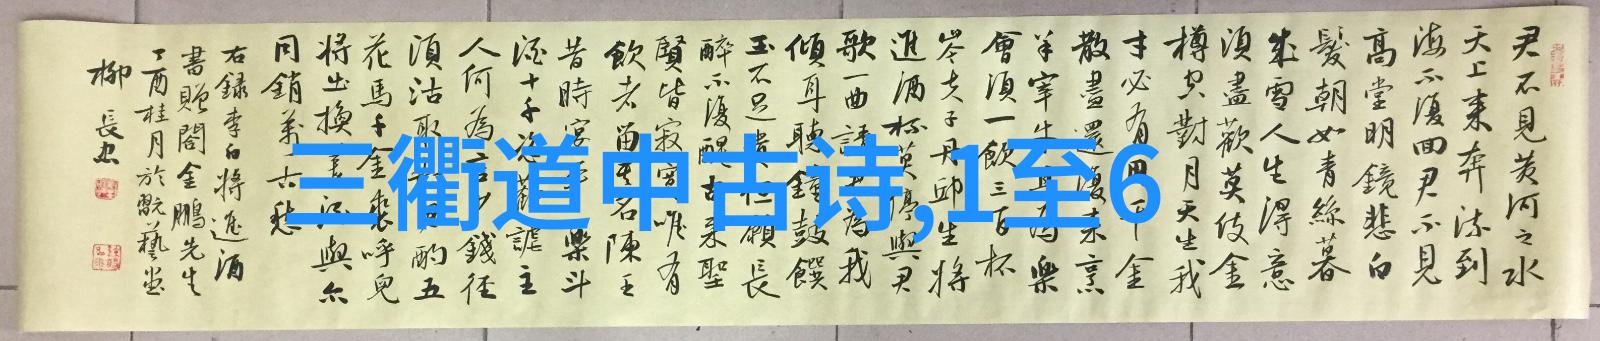 君不見黃河之水
天上來奔流到
海不復回君不見
高堂明鏡悲白
髮朝如青絲暮
成雪人生得意
須盡歡莫使金
樽空對月天生我
才必有用千金
散盡還復來烹
羊宰牛且為樂
會須一飲三百杯
岑夫子丹邱生將
進酒杯莫停與君
歌一曲請君為我
傾耳聽鐘鼓饌
玉不足貴但願長
醉不復醒古來聖
賢皆寂寞唯有
飲者留其名陳王
昔時宴平樂斗
酒十千恣歡謔主
人何為言少錢徑
須沽取對君酌五
花馬千金裘呼兒
將出換美酒與尒
同銷萬古愁
右録李白將進酒
書贈閣金鵬先生
丁酉桂月於翫藝堂
柳長忠
三衢道中古诗,1至6